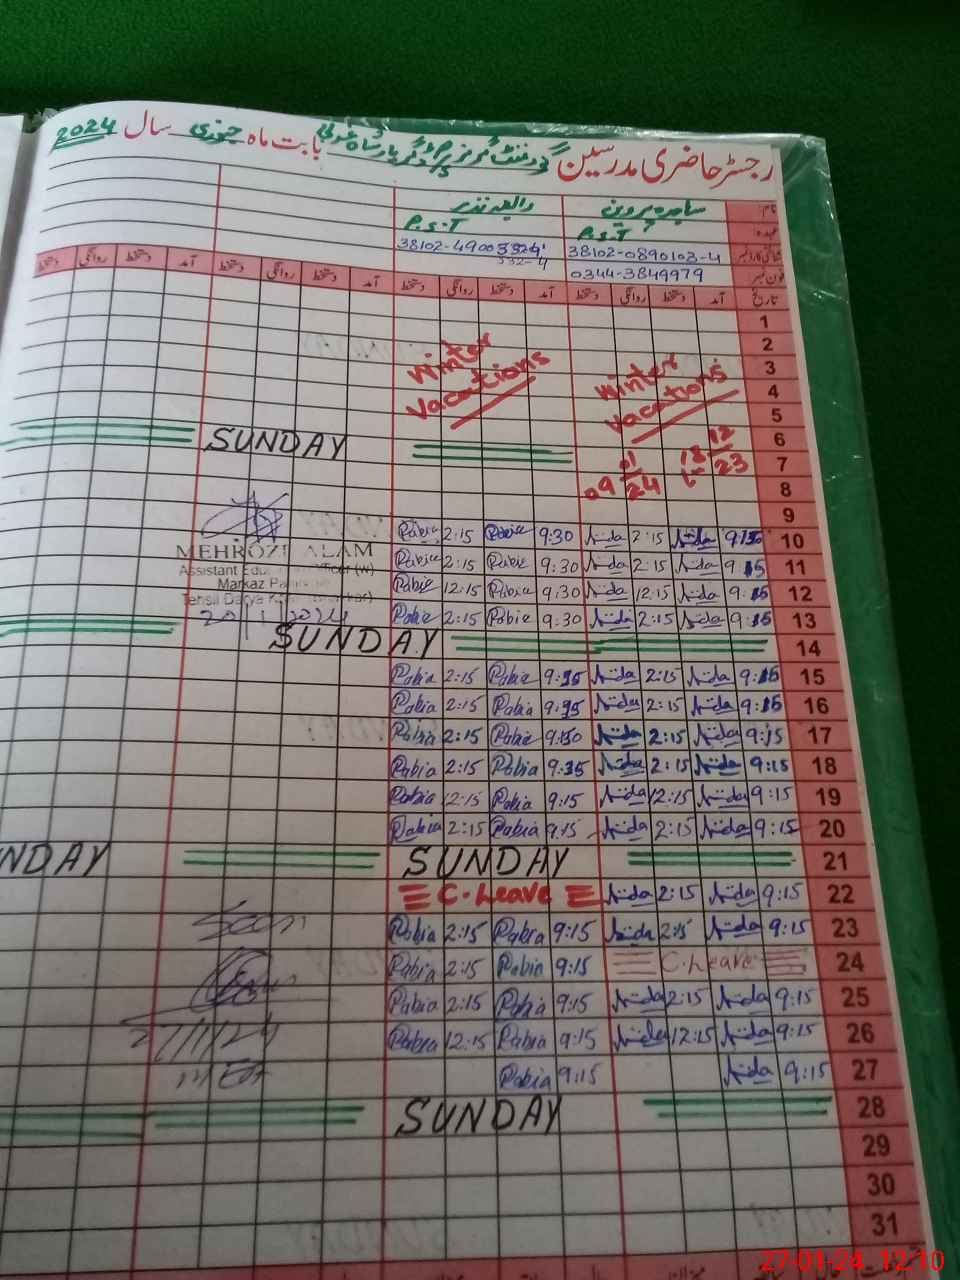 رجسٹر حاضری مدرسین گورنمنٹ گرلز پرائمری بابت ماہ جنوری سال 2024
نام: ساجدہ پروین
عہدہ: P.S.T P.S.T
شناختی کارڈ نمبر 38102-0890103-4 38102-4900332-4
332-4
فون نمبر 0344-3849979
تاریخ آمد دستخط روانگی دستخط آمد دستخط روانگی دستخط آمد دستخط روانگی دستخط آمد دستخط روانگی دستخط
1
2
3
winter winter
4
vacations vacations
5
6
SUNDAY
7
18 12/23
09 01/24
8
9
Rabia 2:15 Rabia 9:30 Nida 2:15 Nida 9:15 10
MEHROZE ALAM
Rabia 2:15 Rabia 9:30 Nida 2:15 Nida 9:15 11
Assistant Edu Officer (w)
Markaz
Rabia 12:15 Rabia 9:30 Nida 12:15 Nida 9:15 12
Tehsil Darya
Rabia 2:15 Rabia 9:30 Nida 2:15 Nida 9:15 13
SUNDAY 14
Rabia 2:15 Rabia 9:35 Nida 2:15 Nida 9:15 15
Rabia 2:15 Rabia 9:35 Nida 2:15 Nida 9:15 16
Rabia 2:15 Rabia 9:30 Nida 2:15 Nida 9:15 17
Rabia 2:15 Rabia 9:35 Nida 2:15 Nida 9:15 18
Rabia 12:15 Rabia 9:15 Nida 12:15 Nida 9:15 19
Rabia 2:15 Rabia 9:15 Nida 2:15 Nida 9:15 20
NDAY SUNDAY 21
C.Leave Nida 2:15 Nida 9:15 22
Seen
Rabia 2:15 Rabia 9:15 Nida 2:15 Nida 9:15 23
Rabia 2:15 Rabia 9:15 C.Leave 24
Rabia 2:15 Rabia 9:15 Nida 2:15 Nida 9:15 25
27/1/24
Rabia 12:15 Rabia 9:15 Nida 12:15 Nida 9:15 26
Rabia 9:15 Nida 9:15 27
SUNDAY 28
29
30
31
27-01-24 12:10